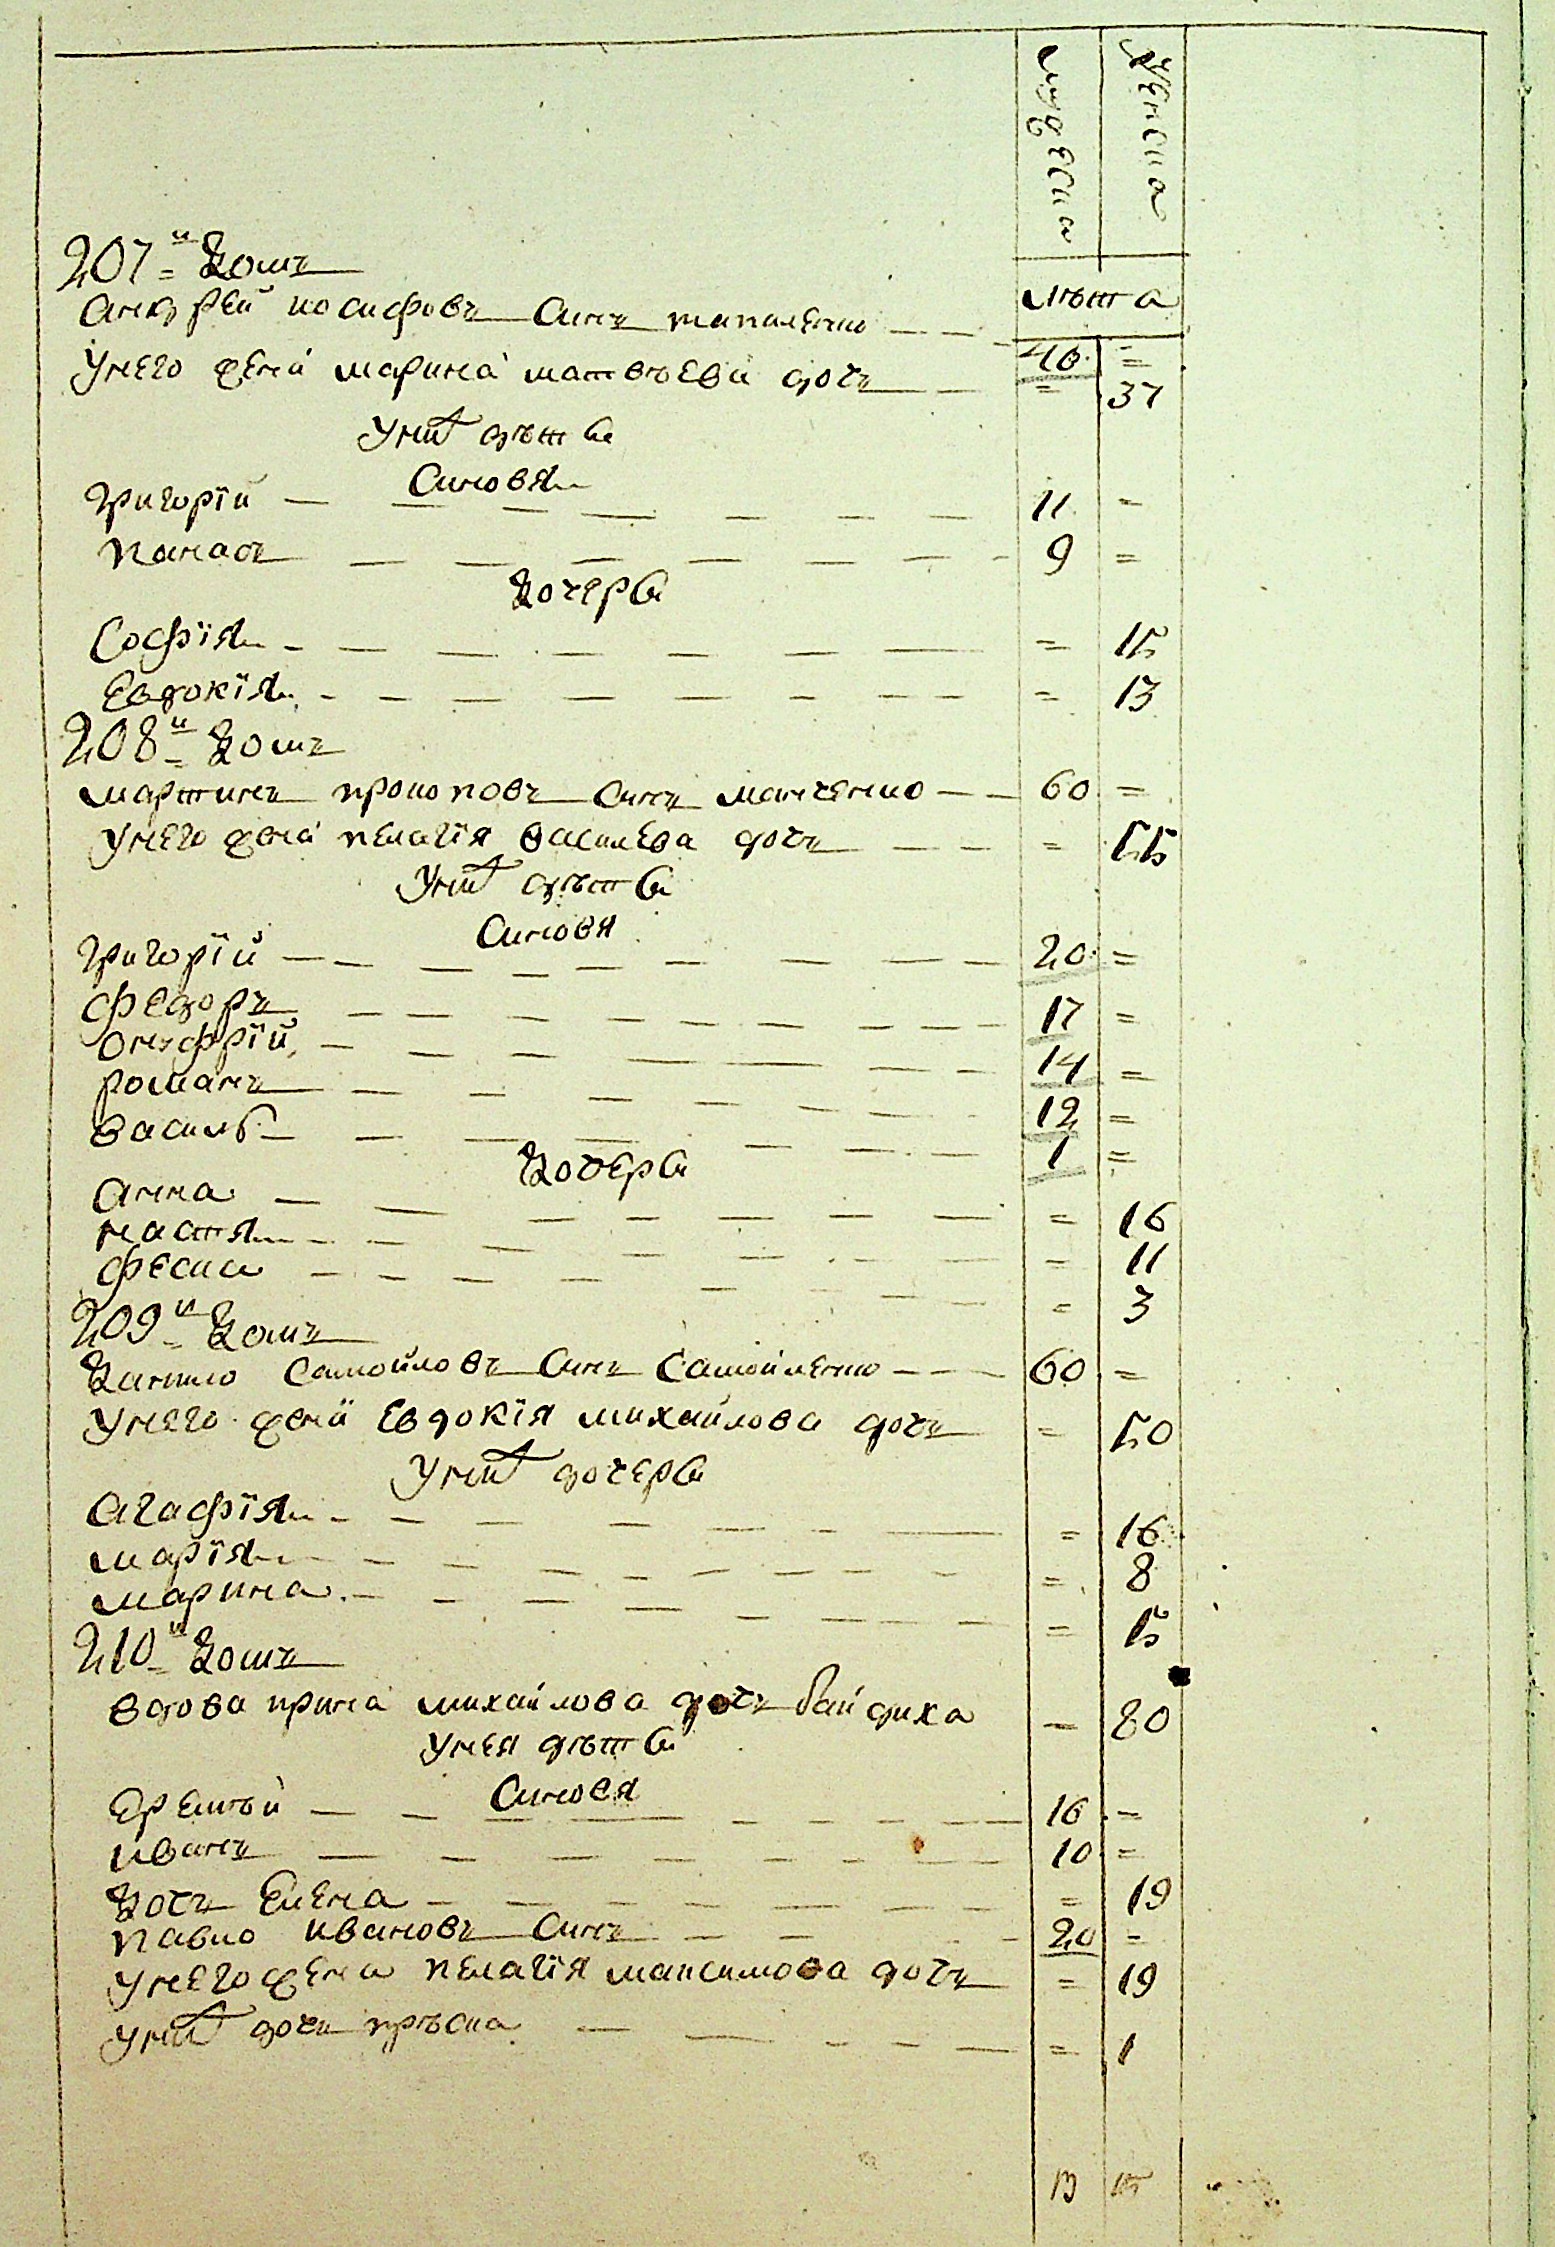 мужеска женска
лѣта
207й домъ
андрей иосифовъ синъ тапиленко 40 =
У него жена марина матвѣева дочъ = 37
У нихъ дѣти
Синовя
григорїй 11 =
панасъ 9 =
Дочери
Софїя = 15
Евдокїя = 13
208й домъ
мартинъ прокоповъ синъ манченко 60 =
У него жена пелагїя василева дочъ = 55
У нихъ дѣти
Синовя
григорїй 20 =
федоръ 17 =
онуфрїй 14 =
романъ 12 =
василь 1 =
Дочери
анна = 16
настя = 11
феска = 3
209й домъ
Данило Самойловъ Синъ Самойленко 60 =
У него жена Евдокїя михайлова дочъ = 50
У нихъ дочери
агафїя = 16
марїя = 8
марина = 5
210й домъ
вдова ирина михайлова дочъ байдиха = 80
У нея дѣти
Синовя
Еремѣй 16 =
иванъ 10 =
Дочъ Елена = 19
павло ивановъ Синъ 20 =
У него жена пелагїя максимова дочъ = 19
У нихъ дочъ прѣска = 1
13 15